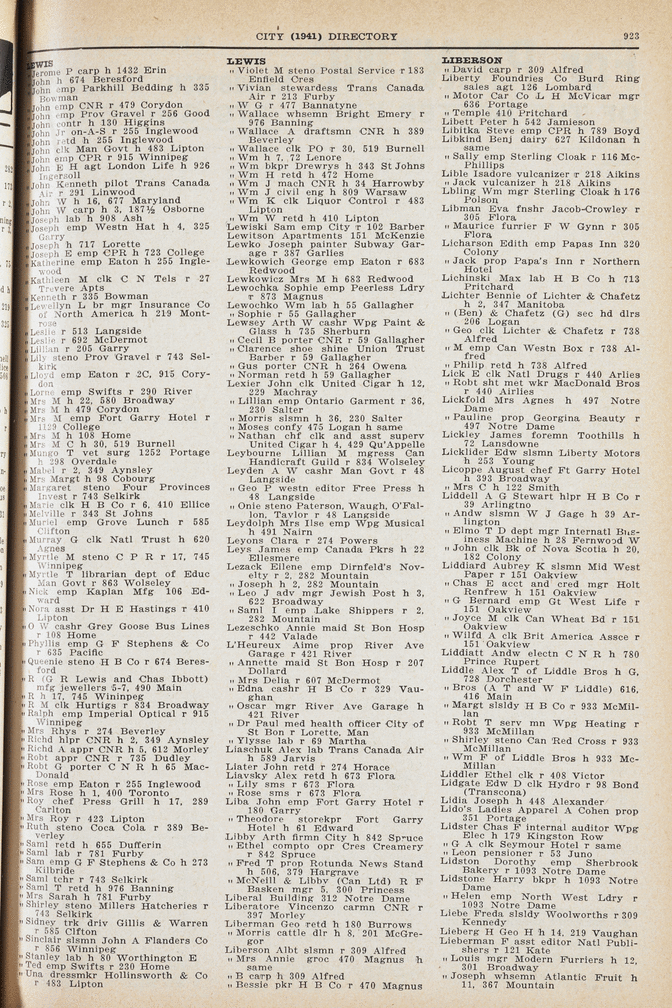 CITY (1941) DIRECTORY 923
LEWIS
" Jerome P carp h 1432 Erin
" John h 674 Beresford
" John emp Parkhill Bedding h 335
Bowman
" John emp CNR r 479 Corydon
" John emp Prov Gravel r 256 Good
" John contr h 130 Higgins
" John Jr on-A-S r 255 Inglewood
" John retd h 255 Inglewood
" John clk Man Govt h 483 Lipton
" John emp CPR r 915 Winnipeg
" John E H agt London Life h 926
Ingersoll
" John Kenneth pilot Trans Canada
Air r 291 Linwood
" John W h 16, 677 Maryland
" John W carp h 3, 187½ Osborne
" Joseph lab h 98 Ash
" Joseph emp Westn Hat h 4, 325
Garry
" Joseph h 717 Lorette
" Joseph E emp CPR h 723 College
" Katherine emp Eaton h 255 Ingle-
wood
" Kathleen M clk C N Tels r 27
Trevere Apts
" Kenneth r 335 Bowman
" Lewellyn L br mgr Insurance Co
of North America h 219 Mont-
rose
" Leslie r 513 Langside
" Leslie r 692 McDermot
" Lillian r 205 Garry
" Lily steno Prov Gravel r 743 Sel-
kirk
" Lloyd emp Eaton r 2C, 915 Cory-
don
" Lorne emp Swifts r 290 River
" Mrs M h 22, 580 Broadway
" Mrs M h 479 Corydon
" Mrs M emp Fort Garry Hotel r
1129 College
" Mrs M h 108 Home
" Mrs M C h 30, 519 Burnell
" Mungo T vet surg 1252 Portage
h 298 Overdale
" Mabel r 2, 349 Aynsley
" Mrs Margt h 98 Cobourg
" Margaret steno Four Provinces
Invest r 743 Selkirk
" Marie clk H B Co r 6, 410 Ellice
" Melville r 343 St Johns
" Muriel emp Grove Lunch r 585
Clifton
" Murray G clk Natl Trust h 620
Agnes
" Myrtle M steno C P R r 17, 745
Winnipeg
" Myrtle T librarian dept of Educ
Man Govt r 863 Wolseley
" Nick emp Kaplan Mfg 106 Ed-
ward
" Nora asst Dr H E Hastings r 410
Lipton
" O W cashr Grey Goose Bus Lines
r 108 Home
" Phyllis emp G F Stephens & Co
r 635 Pacific
" Queenie steno H B Co r 674 Beres-
ford
" R (G R Lewis and Chas Ibbott)
mfg jewellers 5-7, 490 Main
" R h 17, 745 Winnipeg
" R M clk Hurtigs r 834 Broadway
" Ralph emp Imperial Optical r 915
Winnipeg
" Mrs Rhys r 274 Beverley
" Richd hlpr CNR h 2, 349 Aynsley
" Richd A appr CNR h 5, 612 Morley
" Robt appr CNR r 735 Dudley
" Robt G porter C N R h 65 Mac-
Donald
" Rose emp Eaton r 255 Inglewood
" Mrs Rose h 1, 400 Toronto
" Roy chef Press Grill h 17, 289
Carlton
" Mrs Roy r 423 Lipton
" Ruth steno Coca Cola r 389 Be-
verley
" Saml retd h 655 Dufferin
" Saml lab r 781 Furby
" Sam emp G F Stephens & Co h 273
Kilbride
" Saml tchr r 743 Selkirk
" Saml T retd h 976 Banning
" Mrs Sarah h 781 Furby
" Shirley steno Millers Hatcheries r
743 Selkirk
" Sidney trk driv Gillis & Warren
r 585 Clifton
" Sinclair slsmn John A Flanders Co
r 856 Winnipeg
" Stanley lab h 80 Worthington E
" Ted emp Swifts r 230 Home
" Una dressmkr Hollinsworth & Co
r 483 Lipton
LEWIS
" Violet M steno Postal Service r 183
Enfield Cres
" Vivian stewardess Trans Canada
Air r 213 Furby
" W G r 477 Bannatyne
" Wallace whsemn Bright Emery r
976 Banning
" Wallace A draftsmn CNR h 389
Beverley
" Wallace clk PO r 30, 519 Burnell
" Wm h 7, 72 Lenore
" Wm bkpr Drewrys h 343 St Johns
" Wm H retd h 472 Home
" Wm J mach CNR h 34 Harrowby
" Wm J civil eng h 809 Warsaw
" Wm K clk Liquor Control r 483
Lipton
" Wm W retd h 410 Lipton
Lewiski Sam emp City r 102 Barber
Lewitson Apartments 151 McKenzie
Lewko Joseph painter Subway Gar-
age r 387 Garlies
Lewkowich George emp Eaton r 683
Redwood
Lewkowicz Mrs M h 683 Redwood
Lewochka Sophie emp Peerless Ldry
r 873 Magnus
Lewochko Wm lab h 55 Gallagher
" Sophie r 55 Gallagher
Lewsey Arth W cashr Wpg Paint &
Glass h 735 Sherburn
" Cecil B porter CNR r 59 Gallagher
" Clarence shoe shine Union Trust
Barber r 59 Gallagher
" Gus porter CNR h 264 Owena
" Norman retd h 59 Gallagher
Lexier John clk United Cigar h 12,
229 Machray
" Lillian emp Ontario Garment r 36,
230 Salter
" Morris slsmn h 36, 230 Salter
" Moses confy 475 Logan h same
" Nathan chf clk and asst superv
United Cigar h 4, 429 Qu'Appelle
Leybourne Lillian M mgress Can
Handicraft Guild r 834 Wolseley
Leyden A W cashr Man Govt r 48
Langside
" Geo P westn editor Free Press h
48 Langside
" Onie steno Paterson, Waugh, O'Fal-
lon, Taylor r 48 Langside
Leydolph Mrs Ilse emp Wpg Musical
h 491 Nairn
Leyons Clara r 274 Powers
Leys James emp Canada Pkrs h 22
Ellesmere
Lezack Eilene emp Dirnfeld's Nov-
elty r 2, 282 Mountain
" Joseph h 2, 282 Mountain
" Leo J adv mgr Jewish Post h 3,
622 Broadway
" Saml I emp Lake Shippers r 2,
282 Mountain
Lezeschko Annie maid St Bon Hosp
r 442 Valade
L'Heureux Aime prop River Ave
Garage r 421 River
" Annette maid St Bon Hosp r 207
Dollard
" Mrs Delia r 607 McDermot
" Edna cashr H B Co r 329 Vau-
ghan
" Oscar mgr River Ave Garage h
421 River
" Dr Paul med health officer City of
St Bon r Lorette, Man
" Ylysse lab r 69 Martha
Liaschuk Alex lab Trans Canada Air
h 589 Jarvis
Liater John retd r 274 Horace
Liavsky Alex retd h 673 Flora
" Lily sms r 673 Flora
" Rose sms r 673 Flora
Liba John emp Fort Garry Hotel r
180 Garry
" Theodore storekpr Fort Garry
Hotel h 61 Edward
Libby Arth firmn City h 842 Spruce
" Ethel compto opr Cres Creamery
r 842 Spruce
" Fred T prop Rotunda News Stand
h 506, 379 Hargrave
" McNeill & Libby (Can Ltd) R F
Basken mgr 5, 300 Princess
Liberal Building 312 Notre Dame
Liberatore Vincenzo carmn CNR r
397 Morley
Liberman Geo retd h 180 Burrows
" Morris cattle dlr h 8, 201 McGre-
gor
Liberson Albt slsmn r 309 Alfred
" Mrs Annie groc 470 Magnus h
same
" B carp h 309 Alfred
" Bessie pkr H B Co r 470 Magnus
LIBERSON
" David carp r 309 Alfred
Liberty Foundries Co Burd Ring
sales agt 126 Lombard
" Motor Car Co L H McVicar mgr
636 Portage
" Temple 410 Pritchard
Libett Peter h 542 Jamieson
Libitka Steve emp CPR h 789 Boyd
Libkind Benj dairy 627 Kildonan h
same
" Sally emp Sterling Cloak r 116 Mc-
Phillips
Lible Isadore vulcanizer r 218 Aikins
" Jack vulcanizer h 218 Aikins
Libling Wm mgr Sterling Cloak h 176
Polson
Libman Eva fnshr Jacob-Crowley r
305 Flora
" Maurice furrier F W Gynn r 305
Flora
Licharson Edith emp Papas Inn 320
Colony
" Jack prop Papa's Inn r Northern
Hotel
Lichinski Max lab H B Co h 713
Pritchard
Lichter Bennie of Lichter & Chafetz
h 2, 347 Manitoba
" (Ben) & Chafetz (G) sec hd dlrs
206 Logan
" Geo clk Lichter & Chafetz r 738
Alfred
" M emp Can Westn Box r 738 Al-
fred
" Philip retd h 738 Alfred
Lick E clk Natl Drugs r 440 Arlies
" Robt sht met wkr MacDonald Bros
r 440 Airlies
Lickfold Mrs Agnes h 497 Notre
Dame
" Pauline prop Georgina Beauty r
497 Notre Dame
Lickley James foremn Toothills h
72 Lansdowne
Licklider Edw slsmn Liberty Motors
h 253 Young
Licoppe August chef Ft Garry Hotel
h 393 Broadway
" Mrs C h 122 Smith
Liddell A G Stewart hlpr H B Co r
39 Arlingtno
" Andw slsmn W J Gage h 39 Ar-
lington
" Elmo T D dept mgr Internatl Bus-
iness Machine h 28 Fernwood W
" John clk Bk of Nova Scotia h 20,
182 Colony
Liddiard Aubrey K slsmn Mid West
Paper r 151 Oakview
" Chas E acct and cred mgr Holt
Renfrew h 151 Oakview
" G Bernard emp Gt West Life r
151 Oakview
" Joyce M clk Can Wheat Bd r 151
Oakview
" Wilfd A clk Brit America Assce r
151 Oakview
Liddiatt Andw electn C N R h 780
Prince Rupert
Liddle Alex T of Liddle Bros h G,
728 Dorchester
" Bros (A T and W F Liddle) 616,
416 Main
" Margt slsldy H B Co r 933 McMil-
lan
" Robt T serv mn Wpg Heating r
933 McMillan
" Shirley steno Can Red Cross r 933
McMillan
" Wm F of Liddle Bros h 933 Mc-
Millan
Liddler Ethel clk r 408 Victor
Lidgate Edw D clk Hydro r 98 Bond
(Transcona)
Lidia Joseph h 448 Alexander
Lido's Ladies Apparel A Cohen prop
351 Portage
Lidster Chas F internal auditor Wpg
Elec h 179 Kingston Row
" G A clk Seymour Hotel r same
" Leon pensioner r 53 Juno
Lidston Dorothy emp Sherbrook
Bakery r 1093 Notre Dame
Lidstone Harry bkpr h 1093 Notre
Dame
" Helen emp North West Ldry r
1093 Notre Dame
Liebe Freda slsldy Woolworths r 309
Kennedy
Lieberg H Geo H h 14, 219 Vaughan
Lieberman F asst editor Natl Publi-
shers r 121 Kate
" Louis mgr Modern Furriers h 12,
301 Broadway
" Joseph whsemn Atlantic Fruit h
11, 367 Mountain